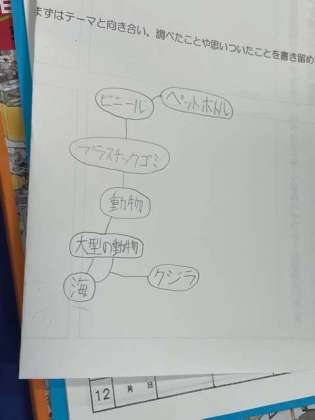 まずはテーマと向き合い、調べたことや思いついたことを書き留め
ビニール
ペットボトル
プラスチックゴミ
動物
大型の動物
海
クジラ
12
月 日